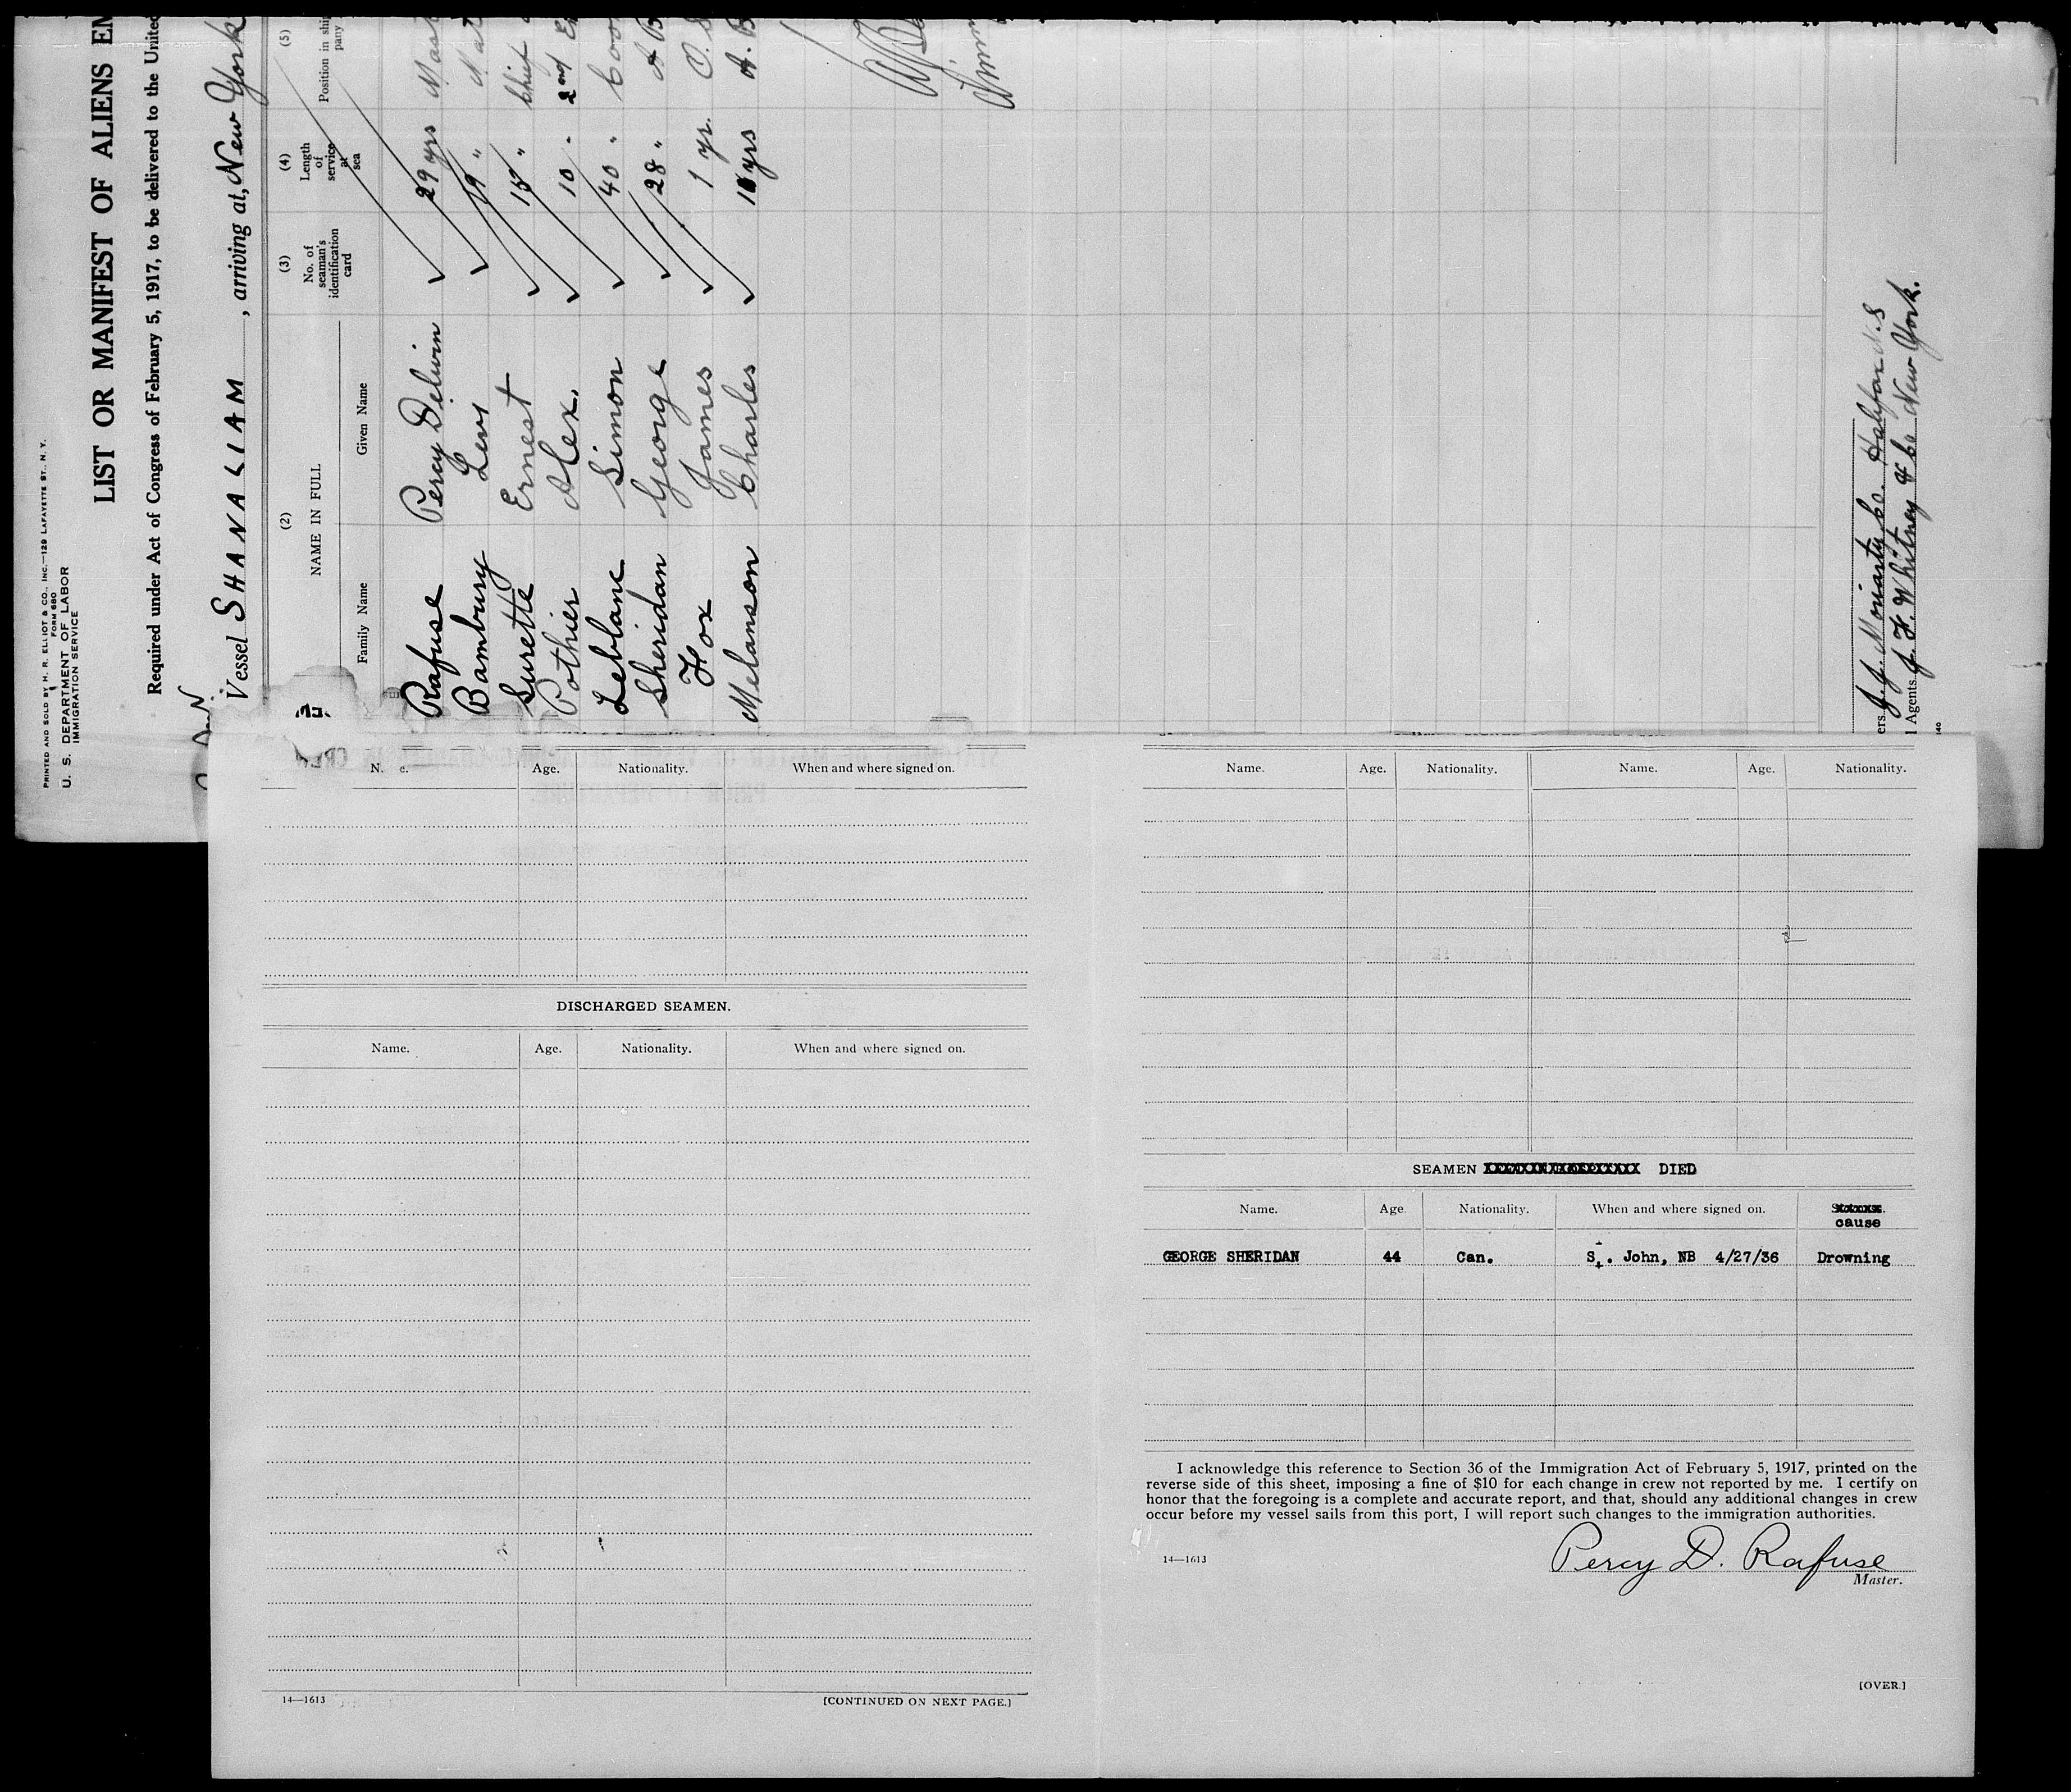 PRINTED AND SOLD BY H. R. ELLIOT & CO., INC.—129 LAFAYETTE ST., N. Y.
FORM 680
U. S. DEPARTMENT OF LABOR
IMMIGRATION SERVICE
LIST OR MANIFEST OF ALIENS EM
Required under Act of Congress of February 5, 1917, to be delivered to the United
Vessel SHANALIAM, arriving at, New York
(2) (3) (4) (5)
NAME IN FULL No. of seaman's identification card Length of service at sea Position in ship pany
Family Name Given Name
Rafuse Percy Delwin 29 yrs Mast
Bambury Lewis 19 "
Surette Ernest 15 " Chief
Pothier Alex. 10 " 2nd En
Leblanc Simon 40 " Coo
Sheridan George 28 " A B
Fox James 1 yr. O. S
Melanson Charles yrs A. B
ers J. J. Moriarty Co. Halifax N. S
l Agents J. F. Whitney & Co New York.
N e. Age. Nationality. When and where signed on.
DISCHARGED SEAMEN.
Name. Age. Nationality. When and where signed on.
14—1613 [CONTINUED ON NEXT PAGE.]
Name. Age. Nationality. Name. Age. Nationality.
SEAMEN DIED
Name. Age. Nationality. When and where signed on. cause
GEORGE SHERIDAN 44 Can. St. John, NB 4/27/36 Drowning
I acknowledge this reference to Section 36 of the Immigration Act of February 5, 1917, printed on the
reverse side of this sheet, imposing a fine of $10 for each change in crew not reported by me. I certify on
honor that the foregoing is a complete and accurate report, and that, should any additional changes in crew
occur before my vessel sails from this port, I will report such changes to the immigration authorities.
14—1613 Percy D. Rafuse
Master.
[OVER.]